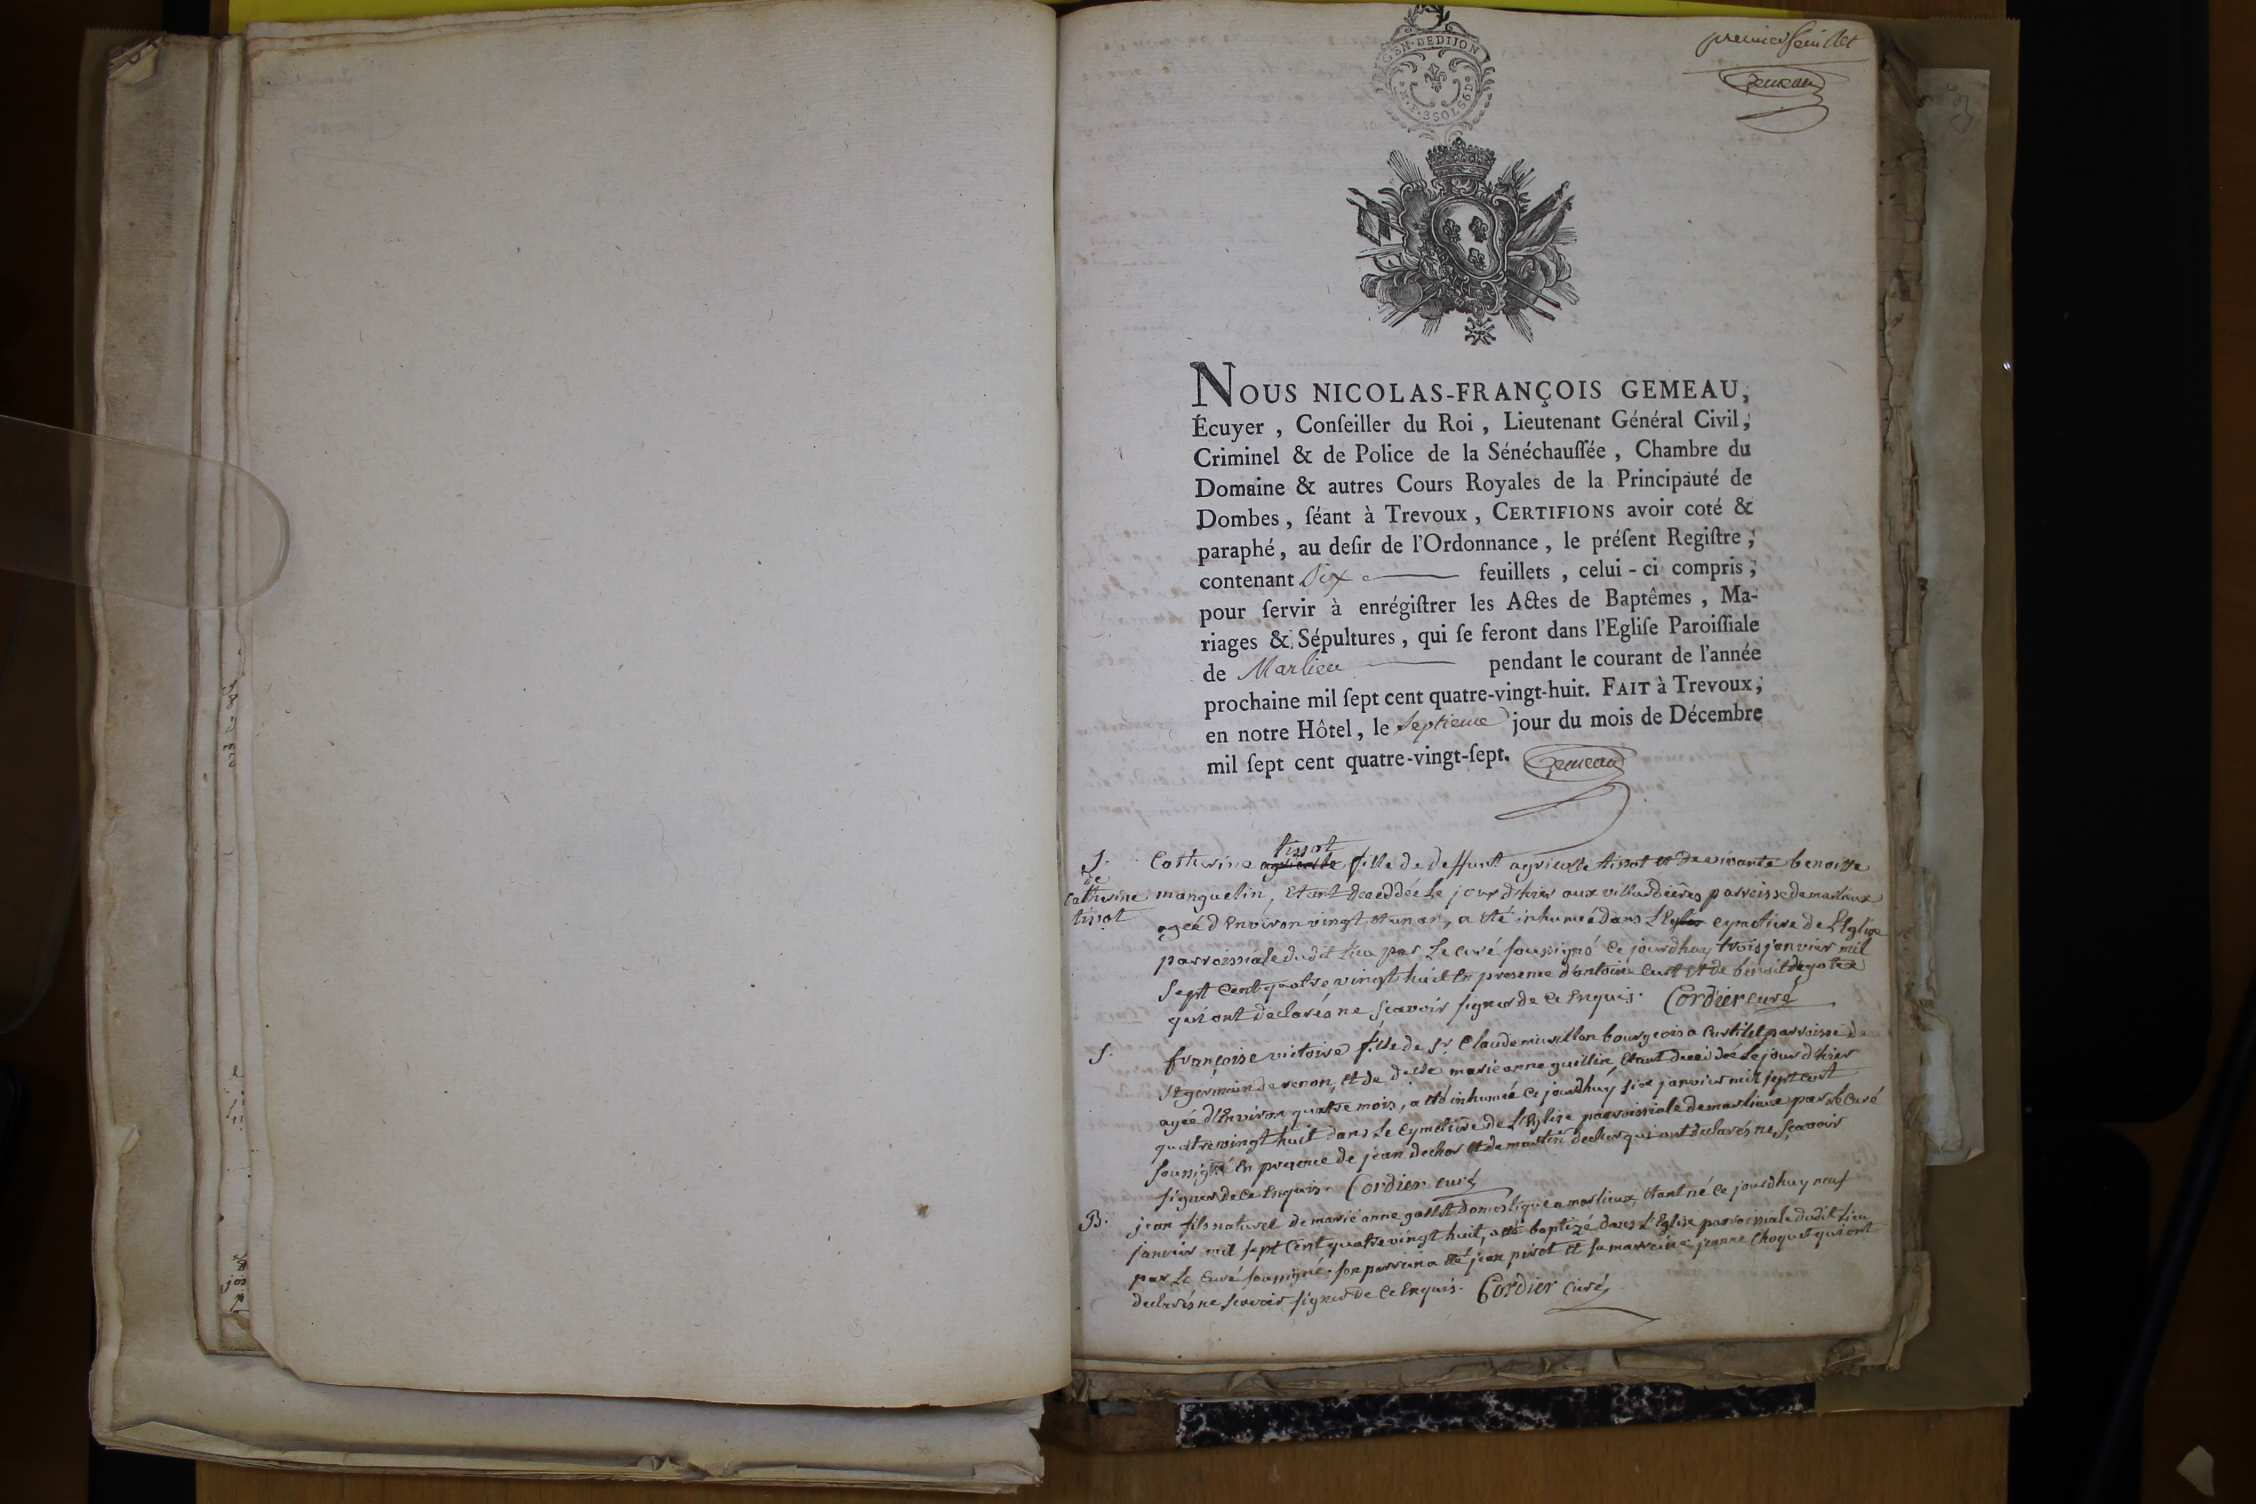 premier feuillet
Gemeau
GEN. DE DIJON
M. P. 3 SOLS 6 D
NOUS NICOLAS-FRANÇOIS GEMEAU,
Écuyer , Conſeiller du Roi , Lieutenant Général Civil,
Criminel & de Police de la Sénéchauſſée , Chambre du
Domaine & autres Cours Royales de la Principauté de
Dombes , ſéant à Trevoux , CERTIFIONS avoir coté &
paraphé, au deſir de l'Ordonnance , le préſent Regiſtre ,
contenant Dix feuillets , celui-ci compris ,
pour ſervir à enrégiſtrer les Actes de Baptêmes , Ma-
riages & Sépultures , qui ſe feront dans l'Egliſe Paroiſſiale
de Marlieu pendant le courant de l'année
prochaine mil ſept cent quatre-vingt-huit. FAIT à Trevoux,
en notre Hôtel, le Septieme jour du mois de Décembre
mil ſept cent quatre-vingt-ſept. Gemeau
S.
de
Catherine
tissot
tissot
Catherine agricolle fille de deffunt agricolle tissot et de vivante benoitte
manguelin, etant decedée le jour d'hier aux villardières parroisse de marlieux
ageé d'environ vingt et un an, a été inhumé dans cymetiere de l'Eglise
parroissiale dudit lieu par le curé soussigné ce jourdhuy trois janvier mil
sept cent quatre vingt huit en presence d'antoine et de benoit
qui ont declarés ne scavoir signer de ce enquis. Cordier curé
S.
françoise victoire fille de Sr. Claude bourgeois a Curtilet parroisse de
St germain de renon, et de delle marie anne guillin, etant decedeé le jour d'hier
ageé d'environ quatre mois, a été inhumeé ce jourdhuy janvier mil sept cent
quatre vingt huit dans le cymetiere de l'Eglise parroissiale de marlieux par le curé
soussigné en presence de jean dechor et de martin dechor qui ont declarés ne scavoir
signer de ce enquis. Cordier curé
B.
jean fils naturel de marie anne domestique a marlieux, etant né ce jourdhuy neuf
janvier mil sept cent quatre vingt huit, a été baptizé dans l'Eglise parroissiale dudit lieu
par le curé soussigné. son parrain a été jean pivot et sa marreine jeanne choquet qui ont
declarés ne scavoir signer de ce enquis. Cordier curé